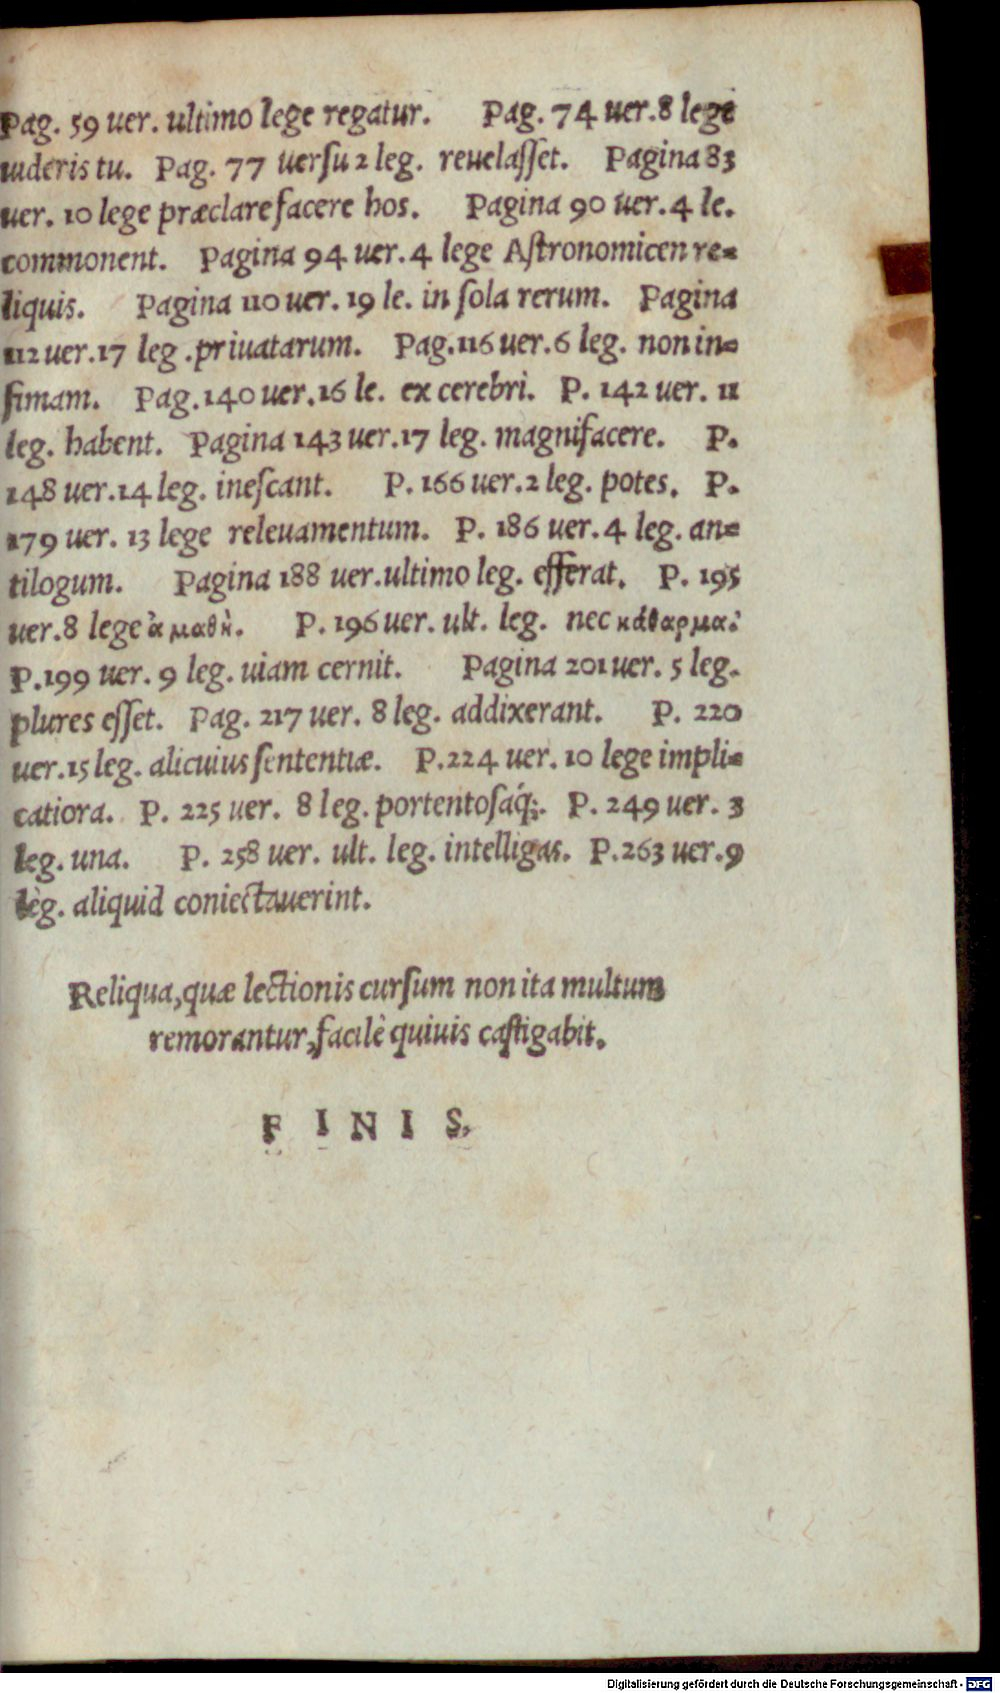 Pag. 59 uer. ultimo lege regatur. Pag. 74 uer. 8 lege
uideris tu. Pag. 77 uersu 2 leg. reuelaſſet. Pagina 83
uer. 10 lege præclare facere hos. Pagina 90 uer. 4 le.
commonent. Pagina 94 uer. 4 lege Aſtronomicen re=
liquis. Pagina 110 uer. 19 le. in ſola rerum. Pagina
112 uer. 17 leg. priuatarum. Pag. 116 uer. 6 leg. non in=
fimam. Pag. 140 uer. 16 le. ex cerebri. P. 142 uer. 11
leg. habent. Pagina 143 uer. 17 leg. magnifacere. P.
148 uer. 14 leg. ineſcant. P. 166 uer. 2 leg. potes. P.
179 uer. 13 lege releuamentum. P. 186 uer. 4 leg. an=
tilogum. Pagina 188 uer. ultimo leg. efferat. P. 195
uer. 8 lege ἀμαθὴ. P. 196 uer. ult. leg. nec κάθαρμα:
P. 199 uer. 9 leg. uiam cernit. Pagina 201 uer. 5 leg.
plures eſſet. Pag. 217 uer. 8 leg. addixerant. P. 220
uer. 15 leg. alicuius ſententiæ. P. 224 uer. 10 lege impli=
catiora. P. 225 uer. 8 leg. portentoſaq́;. P. 249 uer. 3
leg. una. P. 258 uer. ult. leg. intelligas. P. 263 uer. 9
leg. aliquid coniectauerint.
Reliqua, quæ lectionis curſum non ita multum
remorantur, facilè quiuis caſtigabit.
F I N I S.
Digitalisierung gefördert durch die Deutsche Forschungsgemeinschaft - DFG